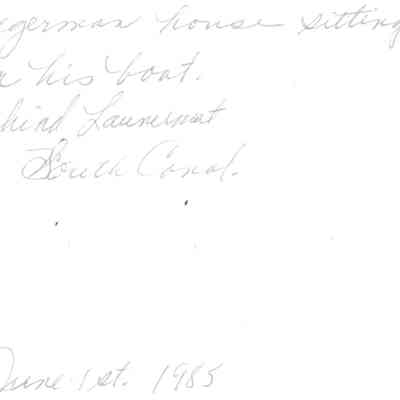 egerman house sitting
his boat.
hind Launermat
South Canal.
June 1st. 1985